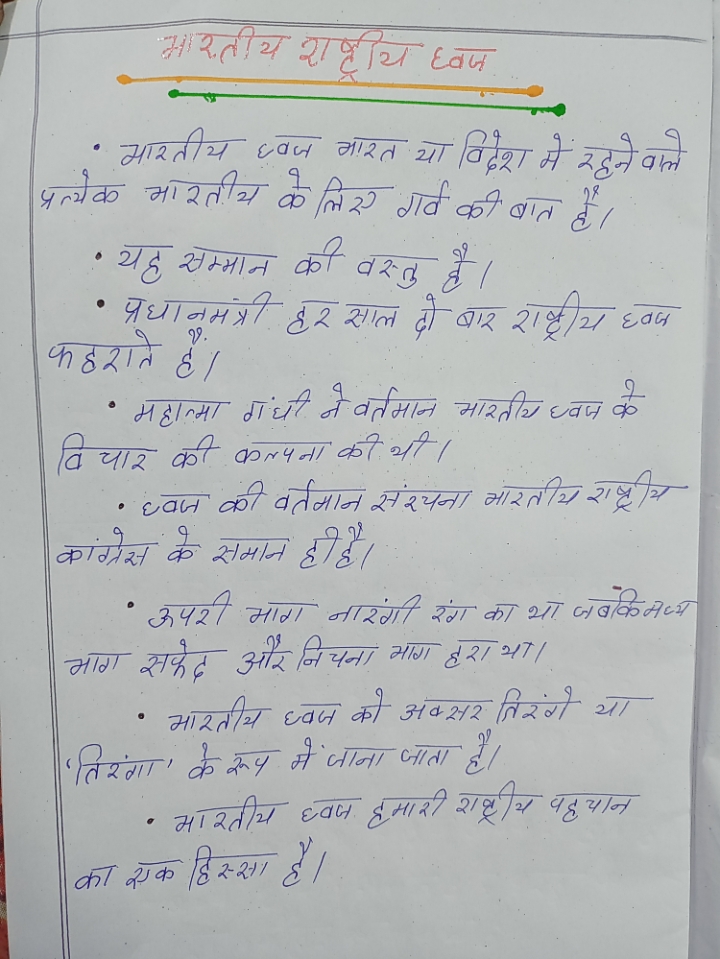 भारतीय राष्ट्रीय ध्वज
• भारतीय ध्वज भारत या विदेश में रहने वाले
प्रत्येक भारतीय के लिए गर्व की बात है।
• यह सम्मान की वस्तु है।
• प्रधानमंत्री हर साल दो बार राष्ट्रीय ध्वज
फहराते हैं।
• महात्मा गांधी ने वर्तमान भारतीय ध्वज के
विचार की कल्पना की थी।
• ध्वज की वर्तमान संरचना भारतीय राष्ट्रीय
कांग्रेस के समान ही है।
• ऊपरी भाग नारंगी रंग का था जबकि मध्य
भाग सफेद और निचना भाग हरा था।
• भारतीय ध्वज को अक्सर तिरंगे या
'तिरंगा' के रूप में जाना जाता है।
• भारतीय ध्वज हमारी राष्ट्रीय पहचान
का एक हिस्सा है।